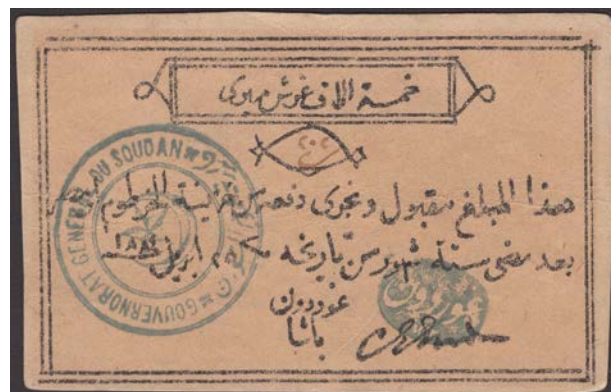 خمسة الاف غرش ميرى
هذا المبلغ مقبول ويجرى دفعه من خزينة الخرطوم
بعد مضى ستة شهور من تاريخه ٢٥ ابريل ١٨٨٤
غوردون
باشا
GOUVERNORAT GENERAL DU SOUDAN